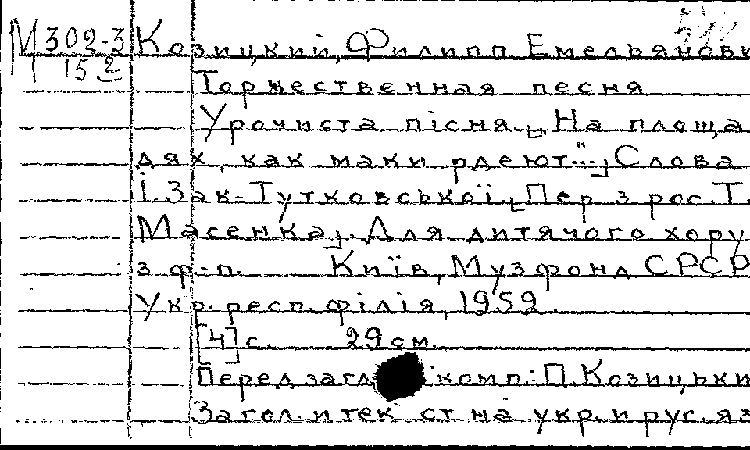 М 302-3 Козицкий, Филипп Емельянови
152
Торжественная песня
Урочиста пісня. [На площа
дях, как маки рдеют"...] Слова
І. Зак-Тутковської [Пер. з рос. Т.
Масенка]. Для дитячого хору
з ф.-п. Київ, Музфонд СРСР
Укр. респ. філія, 1959
[4] с. 29 см.
Перед загл. комп.: П. Козицьки
Загол. и текст на укр. и рус. яз